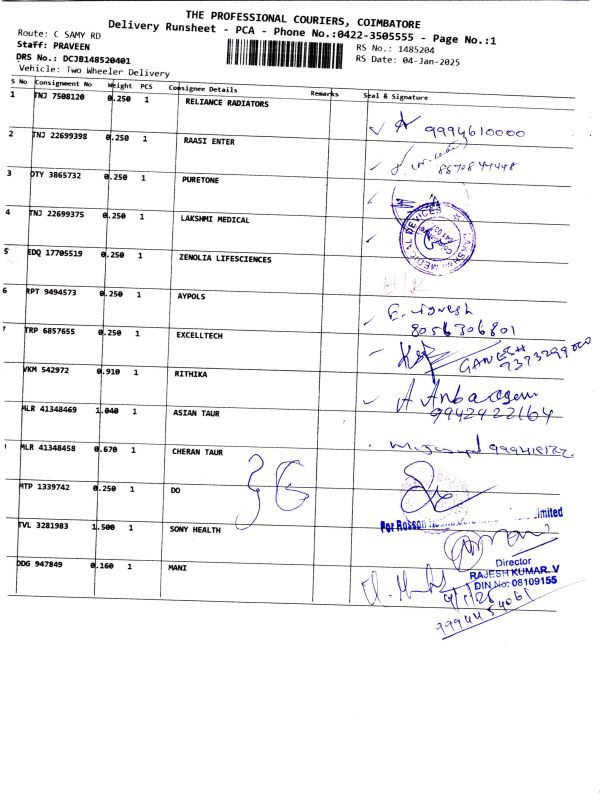 THE PROFESSIONAL COURIERS, COIMBATORE
Delivery Runsheet - PCA - Phone No.:0422-3505555 - Page No.:1
Route: C SAMY RD
Staff: PRAVEEN
RS No.: 1485204
DRS No.: DCJB148520401
RS Date: 04-Jan-2025
Vehicle: Two Wheeler Delivery
S No Consignment No Weight PCS Consignee Details Remarks Seal & Signature
1 TNJ 7508120 0.250 1 RELIANCE RADIATORS
9994610000
2 TNJ 22699398 0.250 1 RAASI ENTER
8870844448
3 DTY 3865732 0.250 1 PURETONE
4 TNJ 22699375 0.250 1 LAKSHMI MEDICAL
LAKSHMI MEDICAL DEVICES
5 EDQ 17705519 0.250 1 ZENOLIA LIFESCIENCES
6 RPT 9494573 0.250 1 AYPOLS
E. Vignesh
8056306801
7 TRP 6857655 0.250 1 EXCELLTECH
GANESH
7373299000
VKM 542972 0.910 1 RITHIKA
A Anbarasan
9942422164
MLR 41348469 1.040 1 ASIAN TAUR
MLR 41348458 0.670 1 CHERAN TAUR
MTP 1339742 0.250 1 DO
For
Limited
TVL 3281983 1.500 1 SONY HEALTH
Director
RAJESH KUMAR. V
DIN No: 08109155
DDG 947849 0.160 1 MANI
4/1/25
9994454061